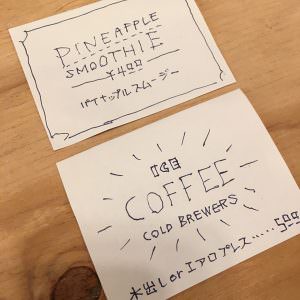 PINEAPPLE
SMOOTHIE
¥400
パイナップルスムージー
ICE
COFFEE
COLD BREWERS
水出し or エアロプレス.....500